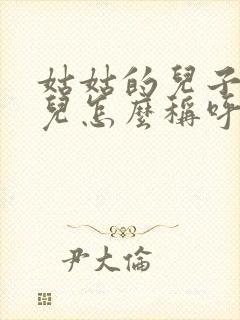 姑姑的兒子
兒怎麼稱呼
尹大倫